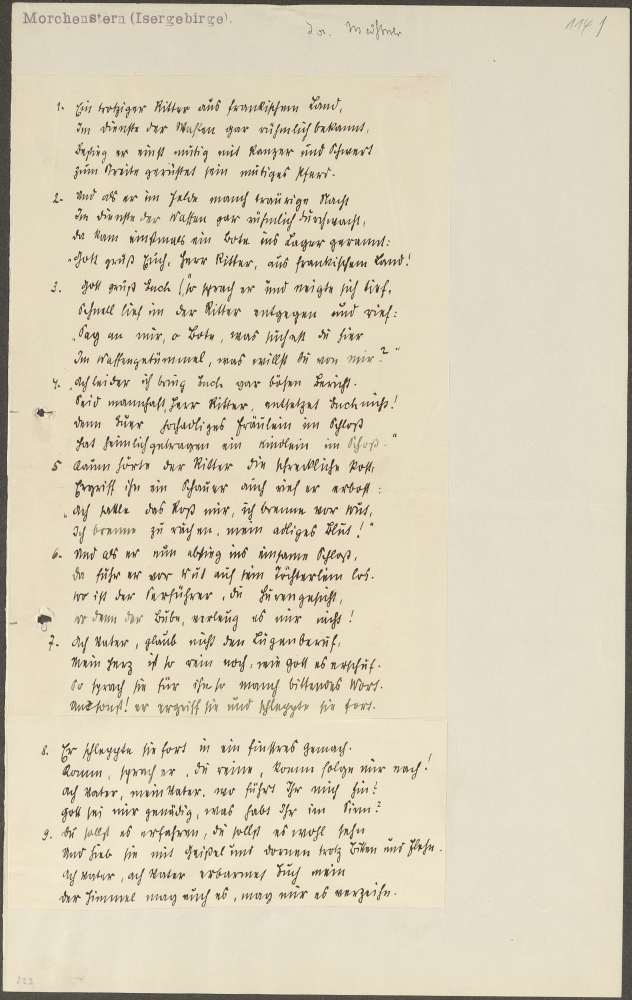 Morchenstern (Isergebirge).
Dr.
114
1. Ein trotziger Ritter aus frankischem Land,
Im Dienste der Waffen gar rühmlich bekannt,
Bestieg er einst mutig mit Panzer und Schwert
zum Streite gerüstet sein mutiges Pferd.
2. Und als er im Felde manch traurige Nacht
Im Dienste der Waffen gar rühmlich durchwacht,
Da kam einstmals ein Bote ins Lager gerannt:
"Gott grüß Euch, Herr Ritter, aus frankischem Land!
3. Gott grüß Euch! so sprach er und neigte sich tief,
Schnell lief im der Ritter entgegen und rief:
"Sag an mir, o Bote, was suchest du hier
Im Waffengetümmel, was willst du von mir?"
4. "Ach leider ich bring Euch gar bösen Bericht.
Seid mannhaft, Herr Ritter, entsetzet Euch nicht!
Denn Euer hochadliges Fräulein im Schloß
Hat heimlich getragen ein Kindlein im Schoß."
5 Kaum hörte der Ritter die schreckliche Post,
Ergriff ihn ein Schauer auch rief er erbost:
"Ach sattle das Roß mir, ich brenne vor Wut,
Ich brenne zu rächen, mein adliges Blut!"
6. Und als er nun abstieg ins einsame Schloß,
Da fuhr er vor Wut auf sein Töchterlein los.
Wo ist der Verführer, du Hurengesicht,
wo denn der Bube, verleug es mir nicht!
7. Ach Vater, glaub nicht den Lügenberuf,
Mein Herz ist so rein noch, wie Gott es erschuf.
So sprach sie für ihn so manch bittendes Wort.
Umsonst! er ergriff sie und schleppte sie fort.
8. Er schleppte sie fort in ein finstres Gemach.
Komm, sprach er, du reine, komm folge mir nach!
Ach Vater, mein Vater, wo führt Ihr mich hin?
Gott sei mir genädig, was habt Ihr im Sinn?
9. Du sollst es erfahren, du sollst es wohl sehn
Und hieb sie mit Geißel und Dornen trotz Bitten und Flehn.
Ach Vater, ach Vater erbarmet Euch mein
Der Himmel mag euch es, mag mir es verzeihn.